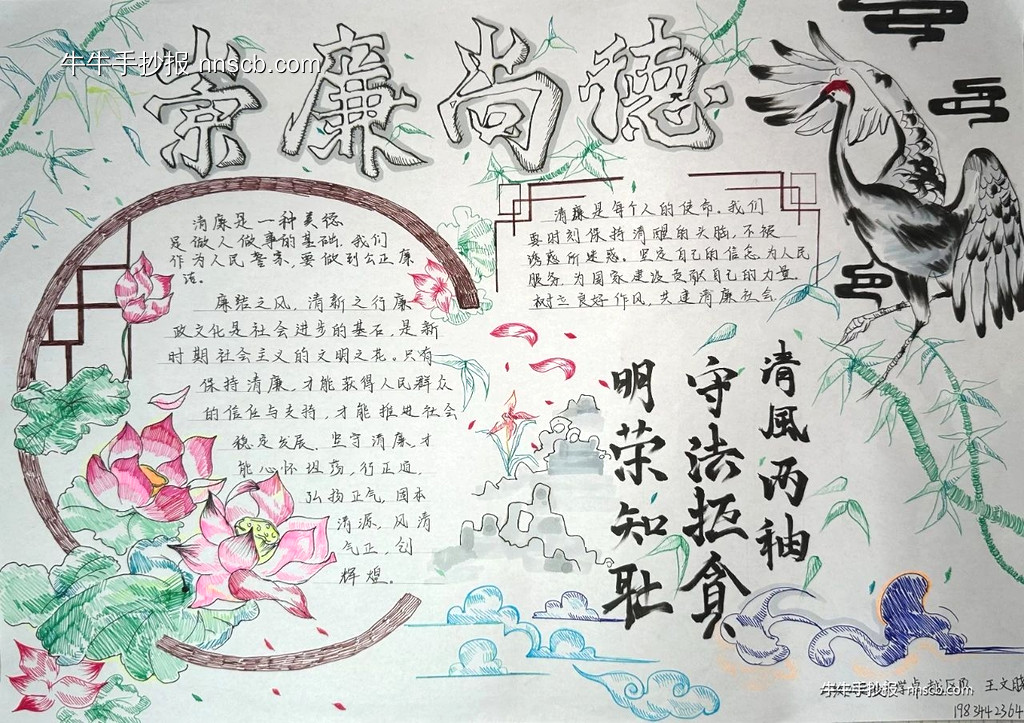 牛牛手抄报 nnscb.com
崇廉尚德
清廉是一种美德
是做人做事的基础.我们
作为人民警察,要做到公正廉
洁。
廉洁之风,清新之行廉
政文化是社会进步的基石,是新
时期社会主义的文明之花。只有
保持清廉,才能获得人民群众
的信任与支持,才能推进社会
稳定发展.坚守清廉才
能心怀坦荡,行正道,
弘扬正气,固本
清源,风清
气正,创
辉煌。
清廉是每个人的使命.我们
要时刻保持清醒的头脑,不被
诱惑所迷惑。坚定自己的信念,为人民
服务,为国家建设贡献自己的力量.
树立良好作风,共建清廉社会
清風两袖
守法拒貪
明荣知耻
牛牛手抄报 nnscb.com
王文